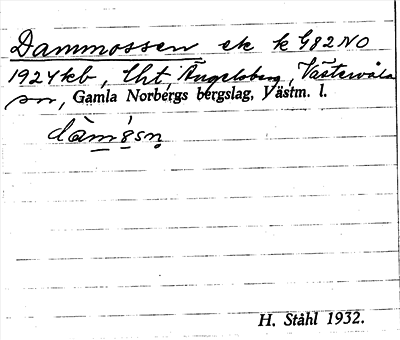 Dammossen ek k G82NO
1924kb, lht, Ängelsberg, Västervåla
sn, Gamla Norbergs bergslag, Västm. l.
H. Ståhl 1932.